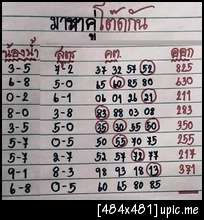 มาหาคู่โต๊ดกัน
น้องน้ำ สูตร คต. ออก
3-5 7-2 37 32 57 52 825
6-8 5-0 65 60 85 80 230
0-2 6-1 06 01 26 21 211
8-0 3-8 83 88 03 08 283
5-5 3-0 35 30 55 50 350
5-7 5-0 50 55 70 75 255
5-7 2-7 52 57 72 77 217
9-1 8-3 98 93 18 13 331
6-8 0-5 60 65 80 85
[484x481] upic.me